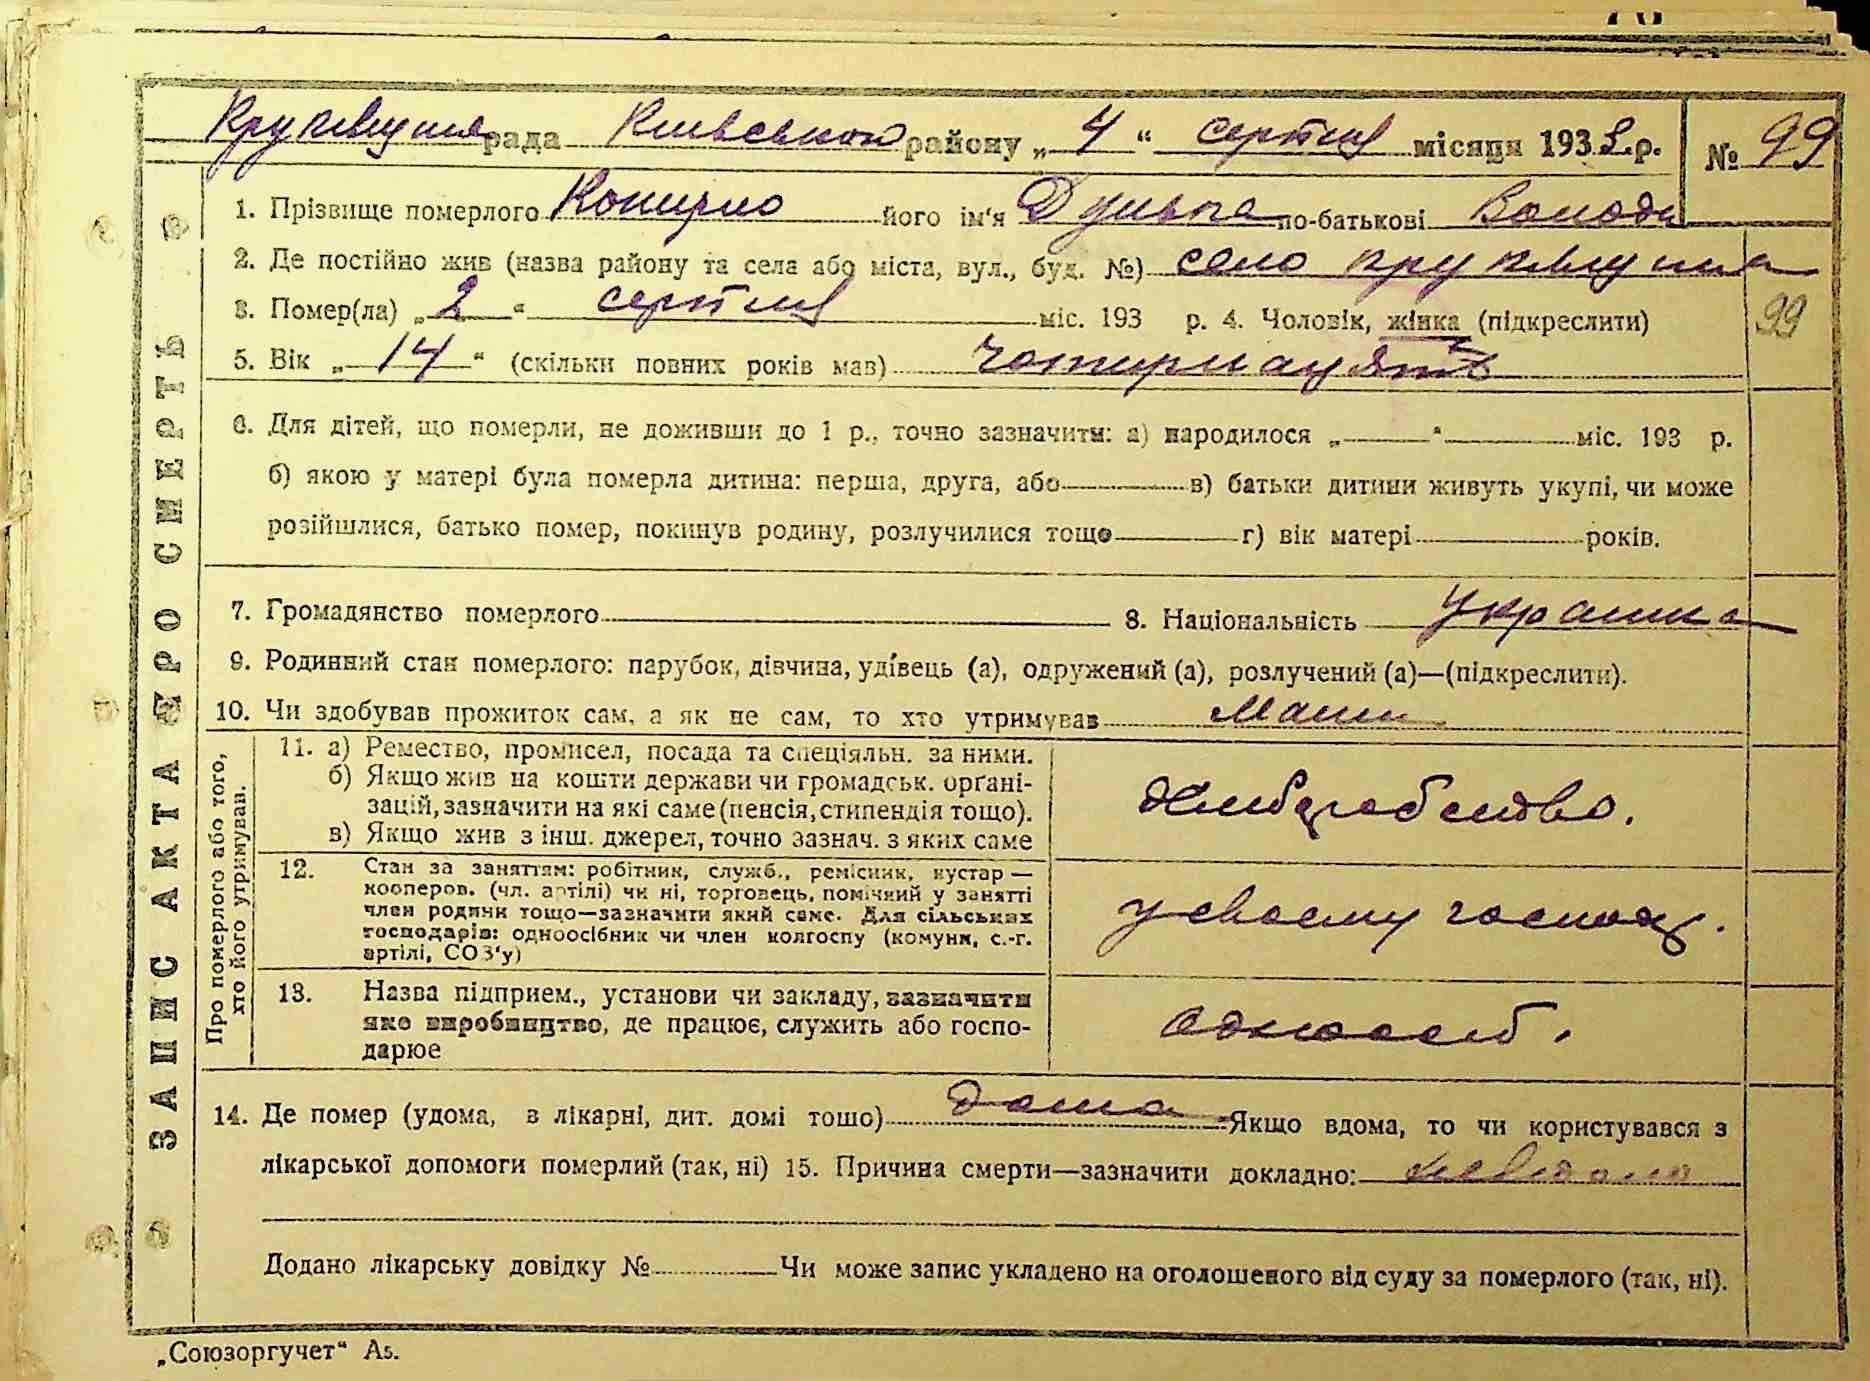 рада Київського району „4“ серпня місяця 1933 р. № 99
1. Прізвище померлого його ім'я по-батькові Володи
2. Де постійно жив (назва району та села або міста, вул., буд. №) село
3. Помер(ла) „2“ серпня міс. 193 р. 4. Чоловік, жінка (підкреслити)
99
5. Вік „14“ (скільки повних років мав) чотирнадцять
6. Для дітей, що померли, не доживши до 1 р., точно зазначити: а) народилося „ “ міс. 193 р.
б) якою у матері була померла дитина: перша, друга, або в) батьки дитини живуть укупі, чи може
розійшлися, батько помер, покинув родину, розлучилися тощо г) вік матері років.
7. Громадянство померлого 8. Національність Украинка
9. Родинний стан померлого: парубок, дівчина, удівець (а), одружений (а), розлучений (а)—(підкреслити).
10. Чи здобував прожиток сам, а як не сам, то хто утримував Мати
11. а) Ремество, промисел, посада та спеціяльн. за ними.
б) Якщо жив на кошти держави чи громадськ. орґані-
зацій, зазначити на які саме (пенсія, стипендія тощо).
в) Якщо жив з інш. джерел, точно зазнач. з яких саме
Хліборобство.
12. Стан за заняттям: робітник, служб., ремісник, кустар—
кооперов. (чл. артілі) чи ні, торговець, помічний у занятті
член родини тощо—зазначити який саме. Для сільських
господарів: одноосібник чи член колгоспу (комуни, с.-г.
артілі, СОЗ'у)
у своему господ.
13. Назва підприєм., установи чи закладу, зазначити
яке виробництво, де працює, служить або госпо-
дарює
одноосіб.
Про померлого або того,
хто його утримував.
14. Де помер (удома, в лікарні, дит. домі тощо) дома Якщо вдома, то чи користувався з
лікарської допомоги померлий (так, ні) 15. Причина смерти—зазначити докладно: невідома
Додано лікарську довідку № Чи може запис укладено на оголошеного від суду за померлого (так, ні).
ЗАПИС АКТА ПРО СМЕРТЬ
„Союзоргучет“ А5.